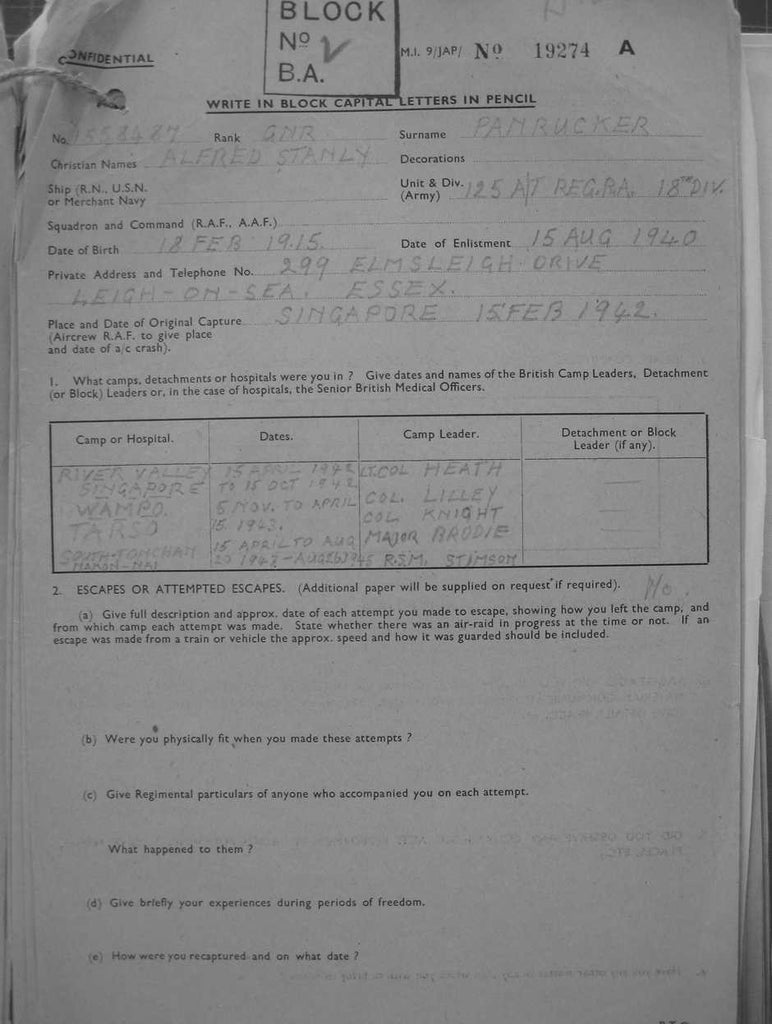 BLOCK
No V
B.A.
CONFIDENTIAL
M.I. 9/JAP/ No 19274 A
WRITE IN BLOCK CAPITAL LETTERS IN PENCIL
No. 1558487 Rank GNR Surname PANRUCKER
Christian Names ALFRED STANLY Decorations
Ship (R.N., U.S.N. or Merchant Navy
Unit & Div. (Army) 125 A/T REG.RA. 18TH DIV.
Squadron and Command (R.A.F., A.A.F.)
Date of Birth 18 FEB 1915. Date of Enlistment 15 AUG 1940
Private Address and Telephone No. 299 ELMSLEIGH DRIVE
LEIGH-ON-SEA. ESSEX.
Place and Date of Original Capture SINGAPORE 15 FEB 1942.
(Aircrew R.A.F. to give place
and date of a/c crash).
1. What camps, detachments or hospitals were you in ? Give dates and names of the British Camp Leaders, Detachment
(or Block) Leaders or, in the case of hospitals, the Senior British Medical Officers.
Camp or Hospital. Dates. Camp Leader. Detachment or Block Leader (if any).
RIVER VALLEY 15 APRIL 1942 LT.COL HEATH
SINGAPORE TO 15 OCT 1942
WAMPO. 5 NOV. TO APRIL COL. LILLEY
TARSO 15 1943. COL KNIGHT
15 APRIL TO AUG MAJOR BRODIE
SOUTH-TONCHAN 20 1943-AUG 1945 R.S.M. STIMSON
2. ESCAPES OR ATTEMPTED ESCAPES. (Additional paper will be supplied on request if required). No.
(a) Give full description and approx. date of each attempt you made to escape, showing how you left the camp, and
from which camp each attempt was made. State whether there was an air-raid in progress at the time or not. If an
escape was made from a train or vehicle the approx. speed and how it was guarded should be included.
(b) Were you physically fit when you made these attempts ?
(c) Give Regimental particulars of anyone who accompanied you on each attempt.
What happened to them ?
(d) Give briefly your experiences during periods of freedom.
(e) How were you recaptured and on what date ?